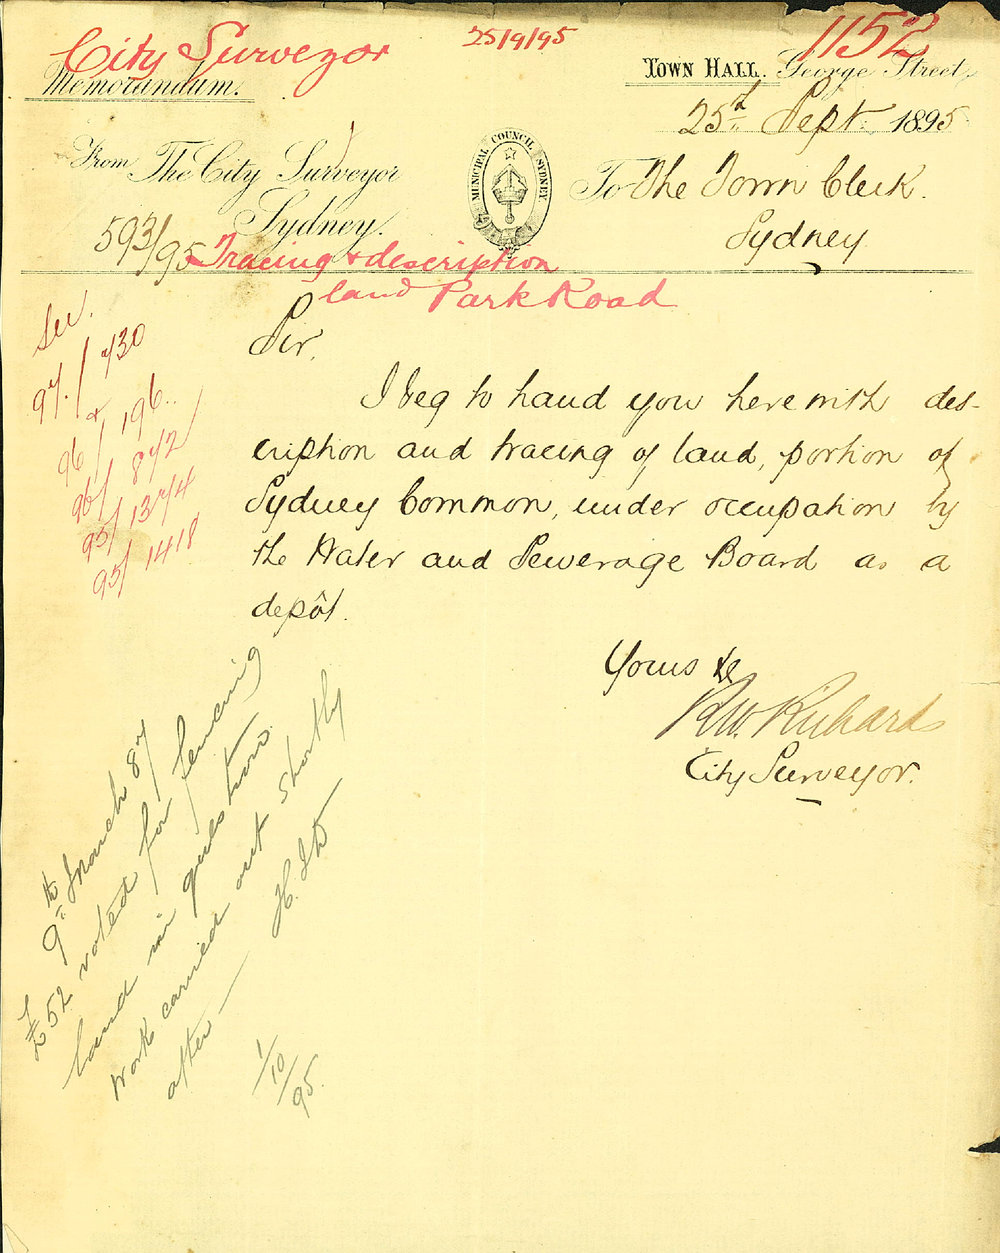 City Surveyor
25/9/95
1152
Memorandum.
TOWN HALL. George Street,
25th Sept. 1895
From The City Surveyor
Sydney.
MUNICIPAL COUNCIL SYDNEY
To The Town Clerk.
Sydney
593/95
Tracing & description
land Park Road
See.
97./730
&
96/196.
96/872
95/1374
95/1418
Sir,
I beg to hand you herewith des-
cription and tracing of land, portion of
Sydney Common, under occupation by
the Water and Sewerage Board as a
depôt.
Yours &c
R.W. Richards
City Surveyor.
9th March 87
£52 voted for fencing
land in question.
Work carried out shortly
after —
1/10/95